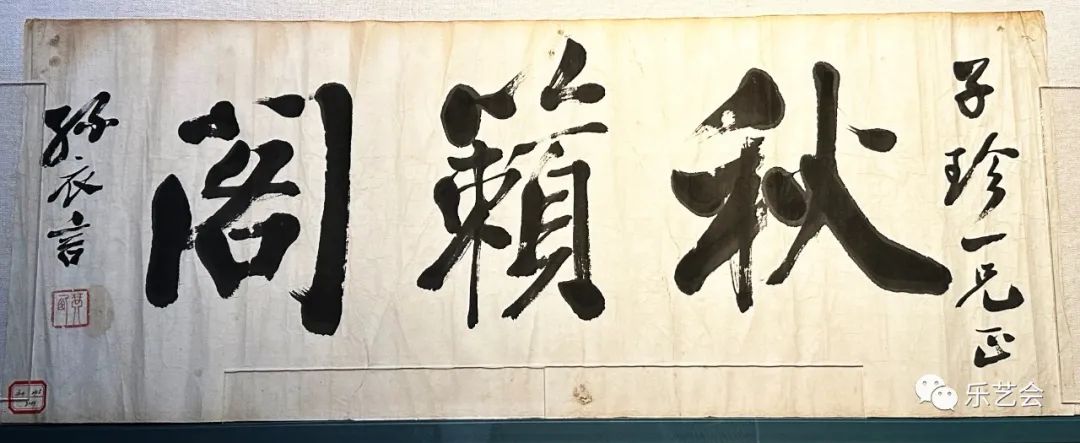 子珍一兄正
秋籟閣
孫衣言
乐艺会